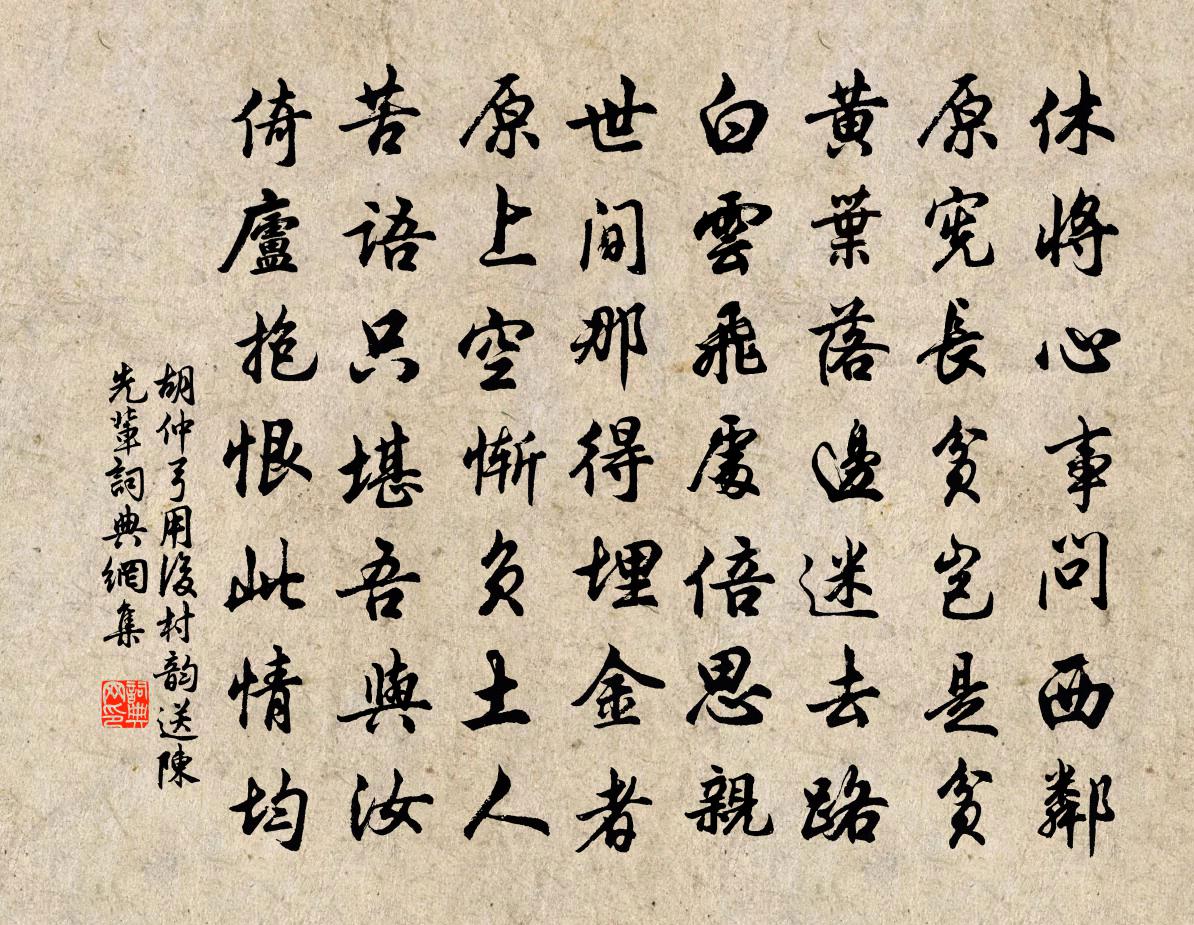 休將心事問西鄰
原憲長貧豈是貧
黃葉落邊迷去路
白雲飛處倍思親
世間那得埋金者
原上空慚負土人
苦語只堪吾與汝
倚廬抱恨此情均
胡仲弓用後村韵送陳
先輩詞典網集
詞典網印